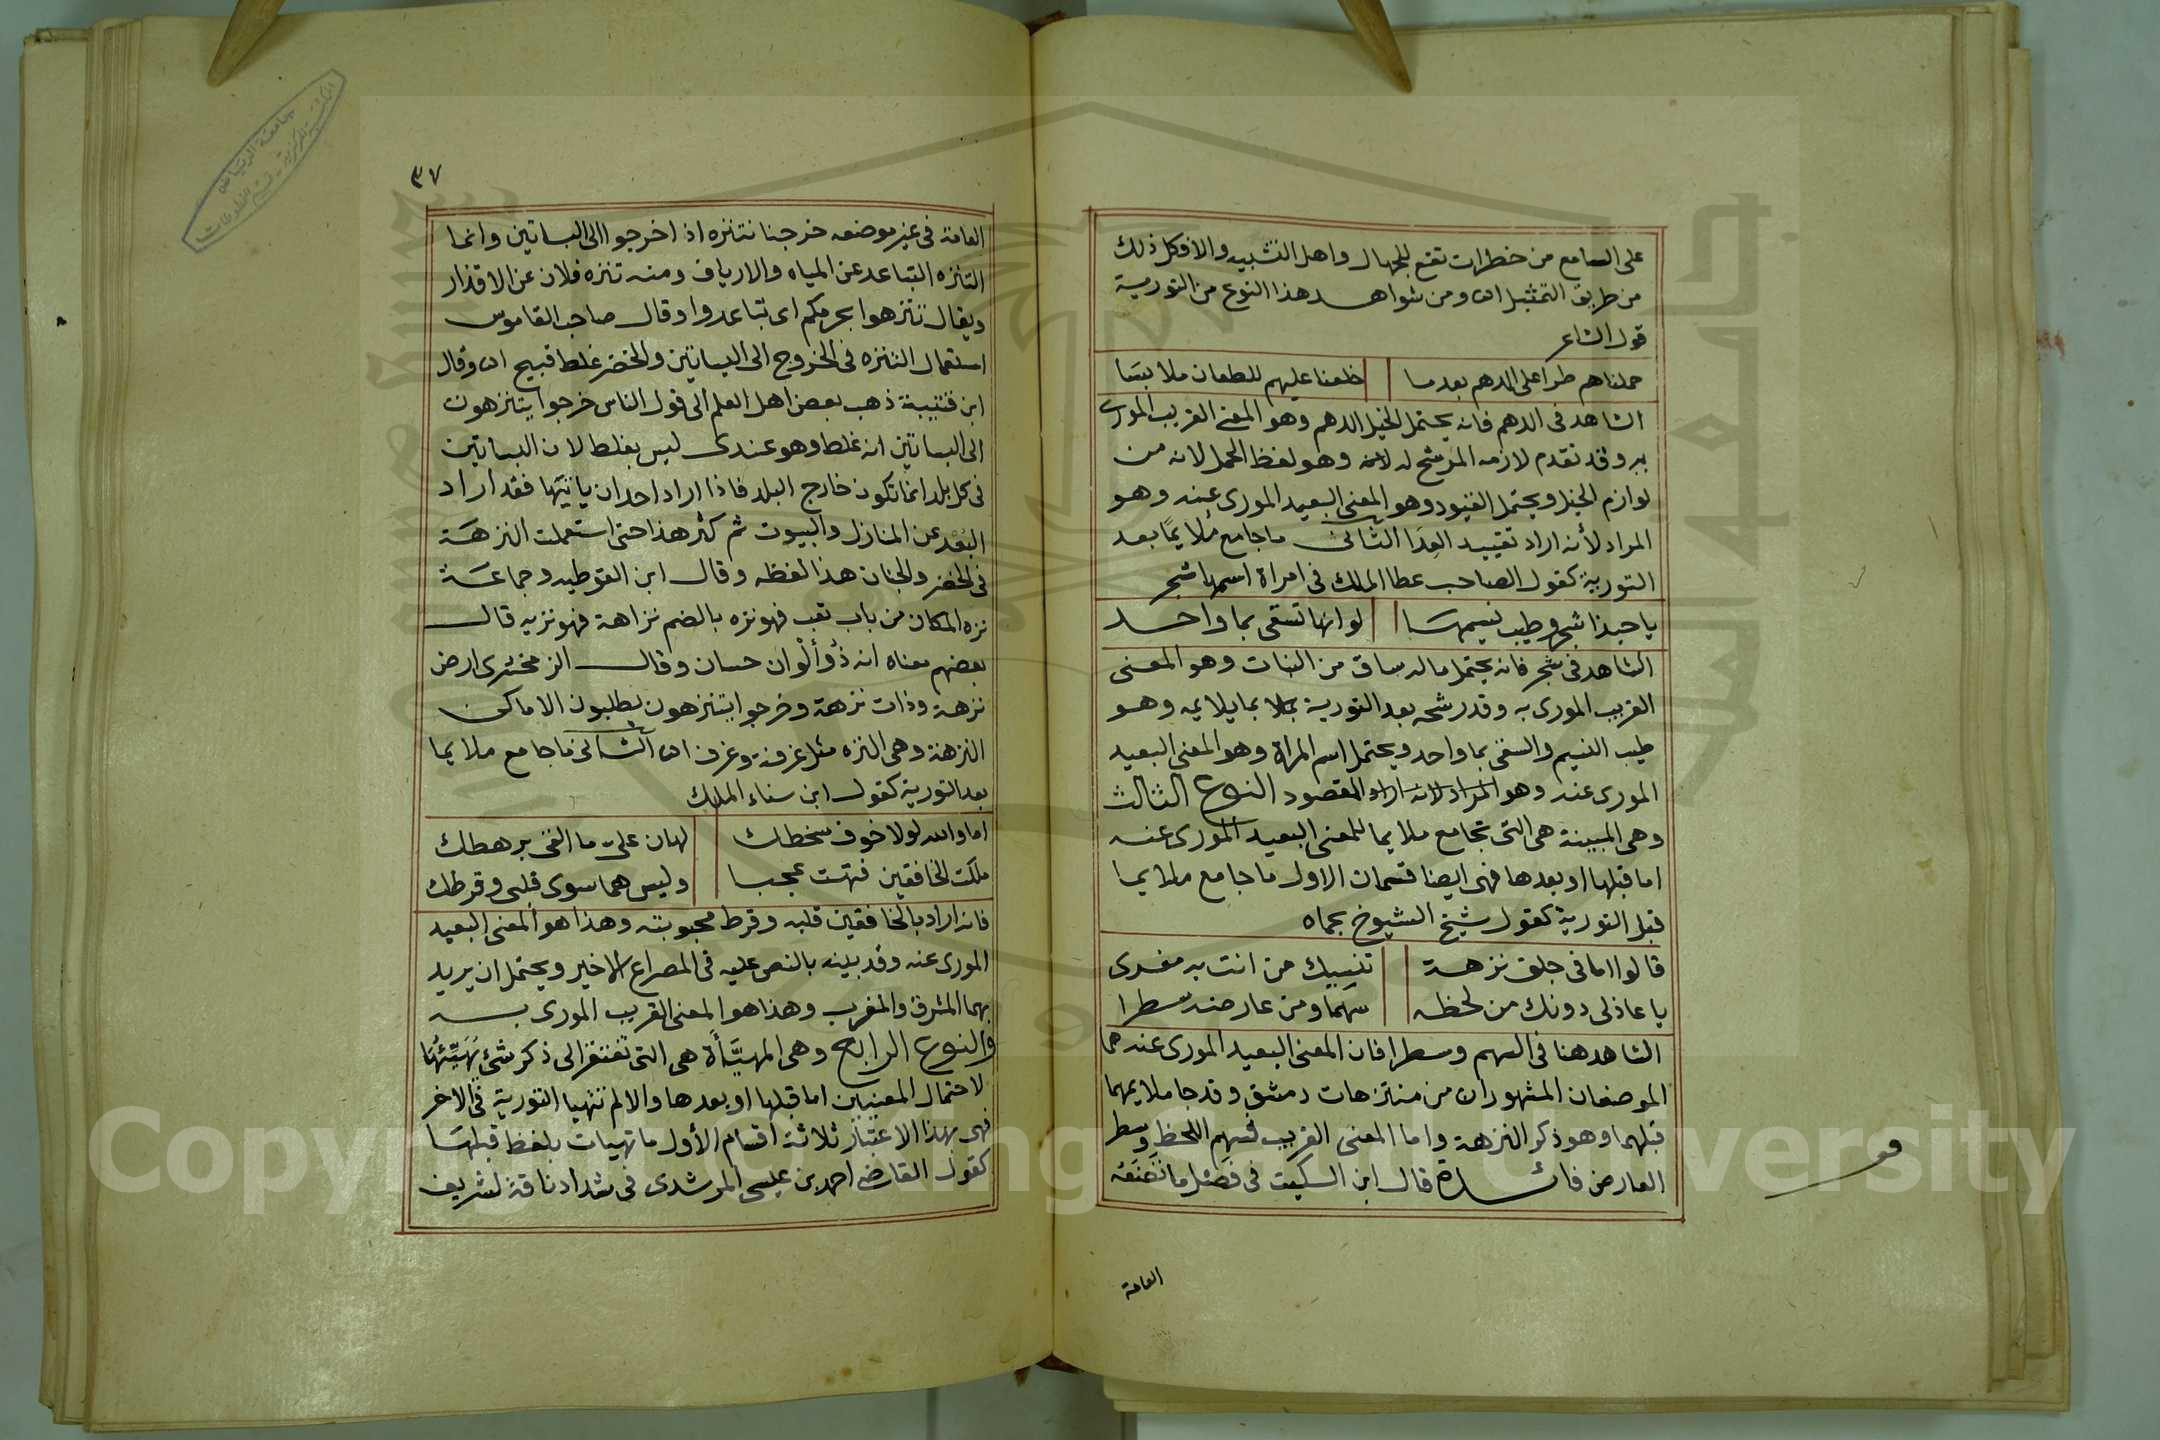 على السامع من خطرات تقع للجهال واهل التشبيه والافكل ذلك
من طريق التمثيل اه ومن شواهد هذا النوع من التورية
قول الشاعر
حملناهم طرا على الدهم بعدما خلعنا عليهم للطعان ملابسا
الشاهد فى الدهم فانه يحتمل الخيل الدهم وهو المعنى القريب المورى
به وقد تقدم لازمه المرشح له لانه وهو لفظ الحمل لانه من
لوازم الخيل ويحتمل القيود وهو المعنى البعيد المورى عنه وهو
المراد لأنه اراد تقييد العدا الثانى ما جامع ملايمًا بعد
التورية كقول الصاحب عطا الملك فى امراة اسمها شجر
يا حبذا شجر وطيب نسيمها لو انها تسقى بما واحد
الشاهد فى شجر فانه يحتمل ما له ساق من النبات وهو المعنى
القريب المورى به وقد رشحه بعد التورية بما يلايمه وهو
طيب النسيم والسقى بما واحد ويحتمل اسم المراة وهو المعنى البعيد
المورى عنه وهو المراد لانه اراد المقصود النوع الثالث
وهى المبينة هى التى تجامع ملايما للمعنى البعيد المورى عنه
اما قبلها او بعدها فهى ايضا قسمان الاول ما جامع ملايما
قبل التورية كقول شيخ الشيوخ بحماه
قالوا اما فى جلق نزهة تنسيك من انت به مغرى
يا عاذلى دونك من لحظه سهما ومن عارضه سطرا
الشاهد هنا فى السهم وسطرا فان المعنى البعيد المورى عنه هما
الموضعان المشهوران من منتزهات دمشق وقد جا ملايمهما
قبلهما وهو ذكر النزهة واما المعنى القريب فسهم اللحظ وسطر
العارض فائدة قال ابن السكيت فى فصل ما تضعه
العامة
قو
٣٧
العامة فى غير موضعه خرجنا نتنزه اذا خرجوا الى البساتين وانما
التنزه التباعد عن المياه والارياف ومنه تنزه فلان عن الاقذار
ويقال تنزهوا بحرمكم اى تباعدوا وقال صاحب القاموس
استعمال التنزه فى الخروج الى البساتين والخضر غلط قبيح اه وقال
ابن قتيبة ذهب بعض اهل العلم الى قول الناس خرجوا يتنزهون
الى البساتين انه غلط وهو عندى ليس بغلط لان البساتين
فى كل بلد انما تكون خارج البلد فاذا اراد احد ان ياتيها فقد اراد
البُعْد عن المنازل والبيوت ثم كثر هذا حتى استعملت النزهة
فى الخضر والجنان هذا لفظه وقال ابن القوطيه وجماعة
نزه المكان من باب تعب فهو نزه بالضم نزاهة فهو نزيه قال
بعضهم معناه انه ذُو ألْوان حسان وقال الزمخشرى ارض
نزهة وذات نزهة وخرجوا يتنزهون يطلبون الاماكن
النزهة وهى النزه مثل غرفة وغرف اه الثانى ما جامع ملايما
بعد التورية كقول ابن سناء الملك
اما والله لولا خوف سخطك لهان على ما القى برهطك
ملكت الخافقين فتهت عجبا وليس هما سوى قلبى وقرطك
فانه اراد بالخافقين قلبه وقرط محبوبته وهذا هو المعنى البعيد
المورى عنه وقد بينه بالنص عليه فى المصراع الاخير ويحتمل ان يريد
بهما المشرق والمغرب وهذا هو المعنى القريب المورى به
والنوع الرابع وهى المهيَّأة هى التى تفتقر الى ذكر شئ يهيّئها
لاحتمال المعنيين اما قبلها او بعدها والا لم تتهيا التورية فى الاخر
فهى بهذا الاعتبار ثلاثة اقسام الأول ما تهيات بلفظ قبلها
كقول القاضى احمد بن عيسى المرشدى فى شداد ناقة لشريف
جامعة الرياض
المكتبة المركزية - قسم المخطوطات
Copyright © King Saud University